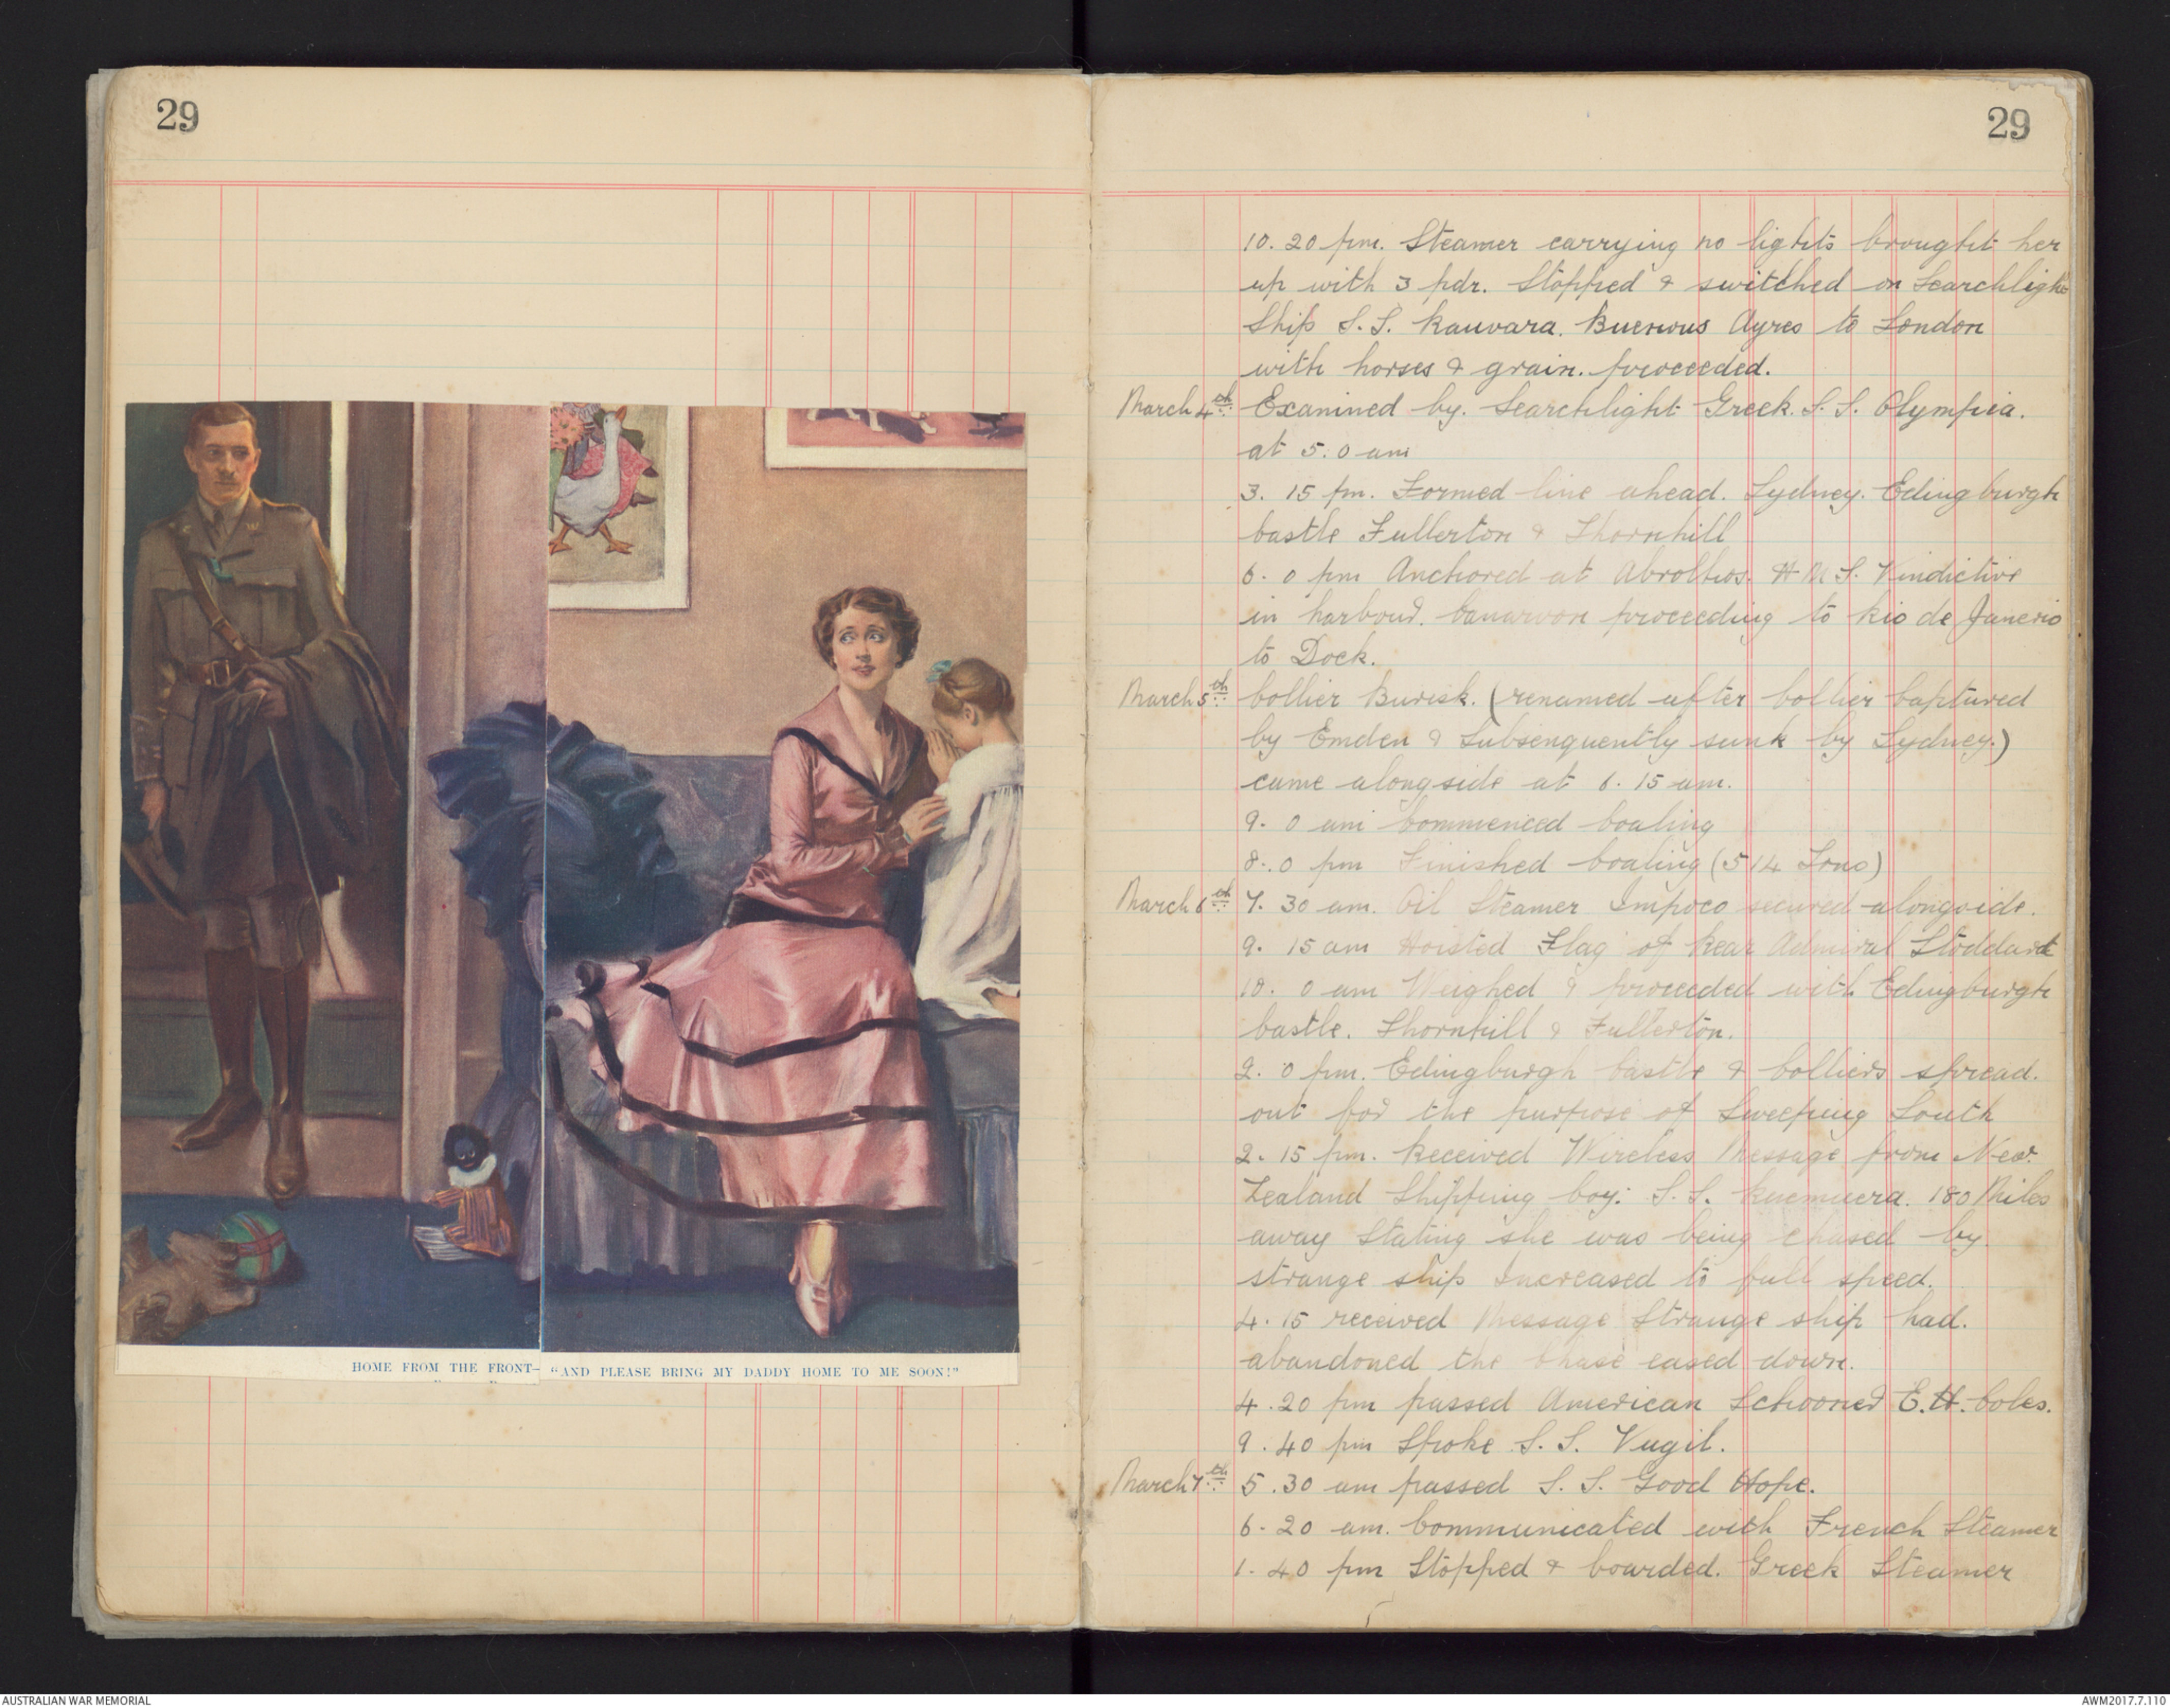 29
HOME FROM THE FRONT— "AND PLEASE BRING MY DADDY HOME TO ME SOON!"
29
10. 20 pm. Steamer carrying no lights brought her
up with 3 pdr. Stopped & switched on Searchlight
Ship S.S. Rauvara. Buenous Ayres to London
with horses & grain. proceeded.
March 4th Examined by. Searchlight Greek. S.S. Olympia.
at 5. 0 am
3. 15 pm. Formed line ahead. Sydney. Edingburgh
Castle Fullerton & Thornhill
6. 0 pm Anchored at Abrolhos. H.M.S. Vindictive
in harbour. Canarvon proceeding to Rio de Janerio
to Dock.
March 5th Collier Buresk. (renamed after Collier Captured
by Emden & Subsenquently sunk by Sydney.)
came alongside at 6. 15 am.
9. 0 am Commenced Coaling
8. 0 pm Finished Coaling (514 Tons)
March 6th 7. 30 am. Oil Steamer Impoco secured alongside.
9. 15 am Hoisted Flag of Rear Admiral Stoddart
10. 0 am Weighed & proceeded with Edingburgh
Castle. Thornhill & Fullerton.
2. 0 pm. Edingburgh Castle & Colliers spread.
out for the purpose of Sweeping South
2. 15 pm. Received Wireless Message from New.
Zealand Shipping Coy: S.S. 180 Miles
away Stating she was being chased by.
strange ship Increased to full speed.
4. 15 received Message Strange ship had.
abandoned the Chase eased down.
4. 20 pm passed American Schooner E.H. Coles.
9. 40 pm Spoke S.S. Vugil.
March 7th 5. 30 am passed S.S. Good Hope.
6. 20 am. Communicated with French Steamer
1. 40 pm Stopped & boarded. Greek Steamer
AUSTRALIAN WAR MEMORIAL
AWM2017.7.110